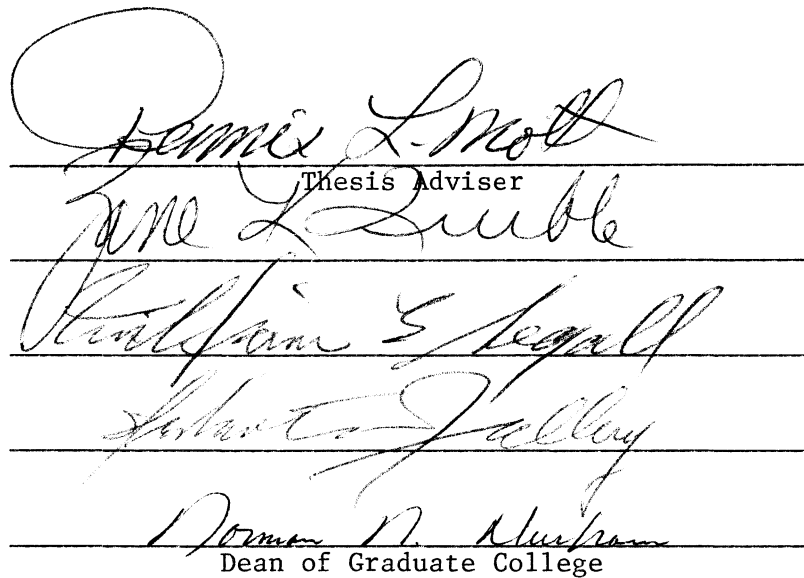 Dennis L. Mott
Thesis Adviser
Zane L Quible
William E Segall
Norman N. Durham
Dean of Graduate College